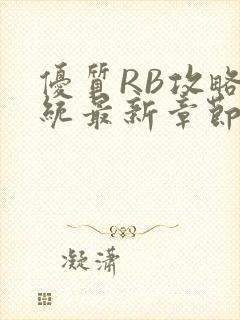 優質RB攻略
統最新章節
凝瀟